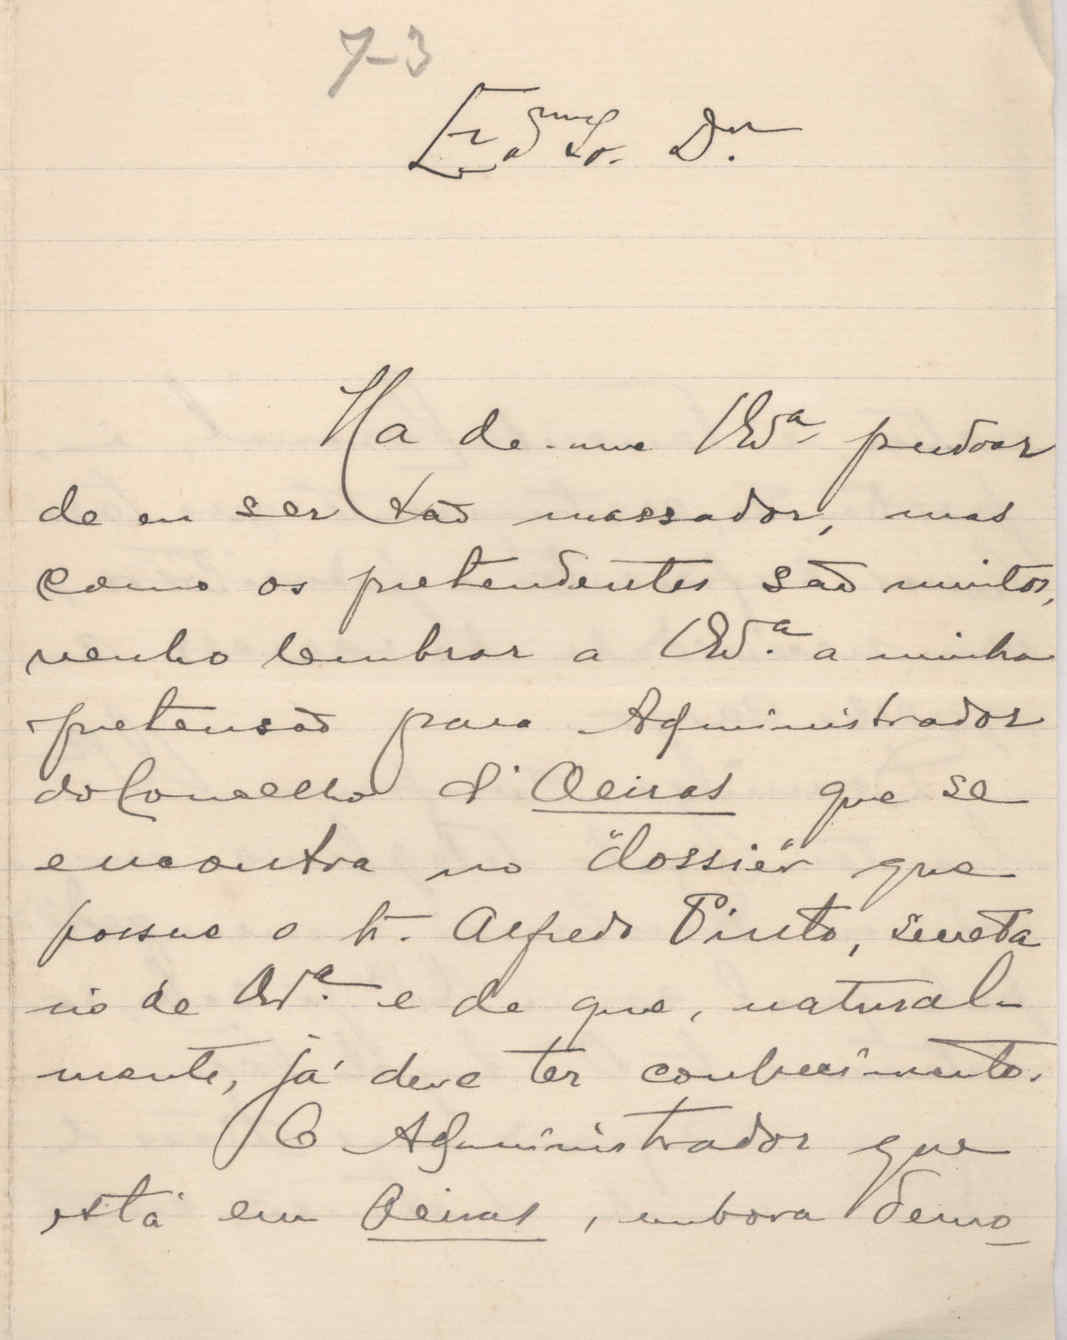 7-3
Exmo. Dr.
Ha de-me V Exa. perdoar
de eu ser tão massador, mas
como os pretendentes são muitos,
venho lembrar a V Exa. a minha
pretensão para Administrador
do Concelho d'Oeiras que se
encontra no "dossier" que
possue o Sr. Alfredo Pinto, secreta
rio de V Exa. e de que, natural-
mente, já deve ter conhecimento.
O Administrador que
está em Oeiras, embora demo